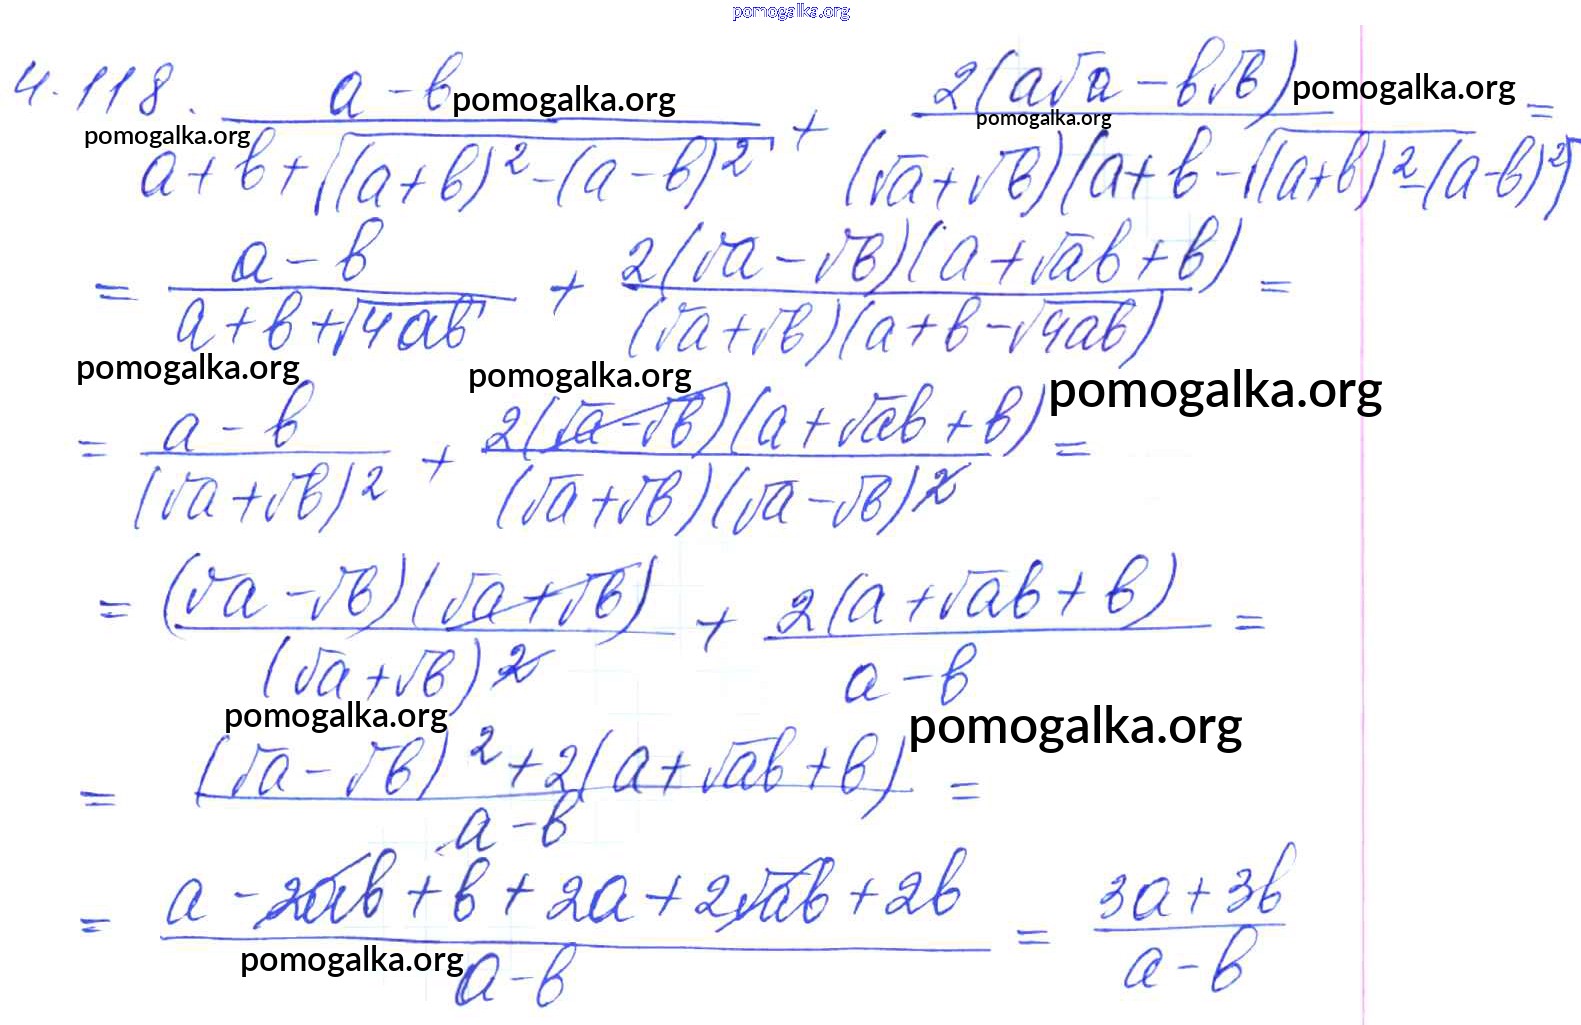 pomogalka.org
4.118. (a-b)/(a+b+√((a+b)²-(a-b)²)) + 2(a√a-b√b)/((√a+√b)(a+b-√((a+b)²-(a-b)²))) =
pomogalka.org pomogalka.org pomogalka.org pomogalka.org
= (a-b)/(a+b+√4ab) + 2(√a-√b)(a+√ab+b)/((√a+√b)(a+b-√4ab)) =
pomogalka.org pomogalka.org pomogalka.org
= (a-b)/(√a+√b)² + 2(√a-√b)(a+√ab+b)/((√a+√b)(√a-√b)²) =
= (√a-√b)(√a+√b)/(√a+√b)² + 2(a+√ab+b)/(a-b) =
pomogalka.org pomogalka.org
= ((√a-√b)²+2(a+√ab+b))/(a-b) =
= (a-2√ab+b+2a+2√ab+2b)/(a-b) = (3a+3b)/(a-b)
pomogalka.org